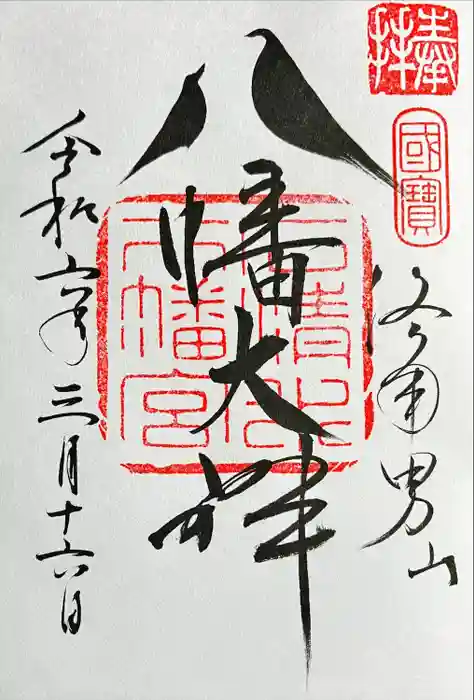 奉拝
國寶
洛南男山
八幡大神
石清水
八幡宮
令和六年三月十六日